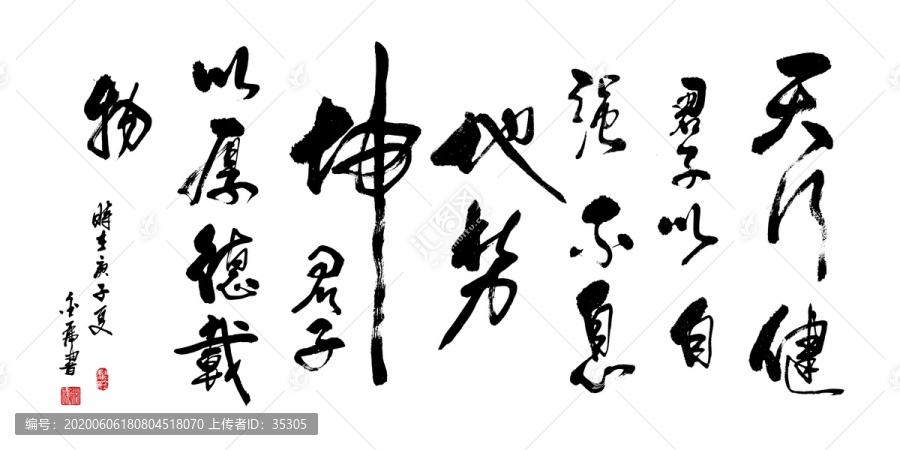 天行健
君子以自
强不息
地势
坤君子
以厚德载
物
時在庚子夏
书
编号：20200606180804518070 上传者ID：35305